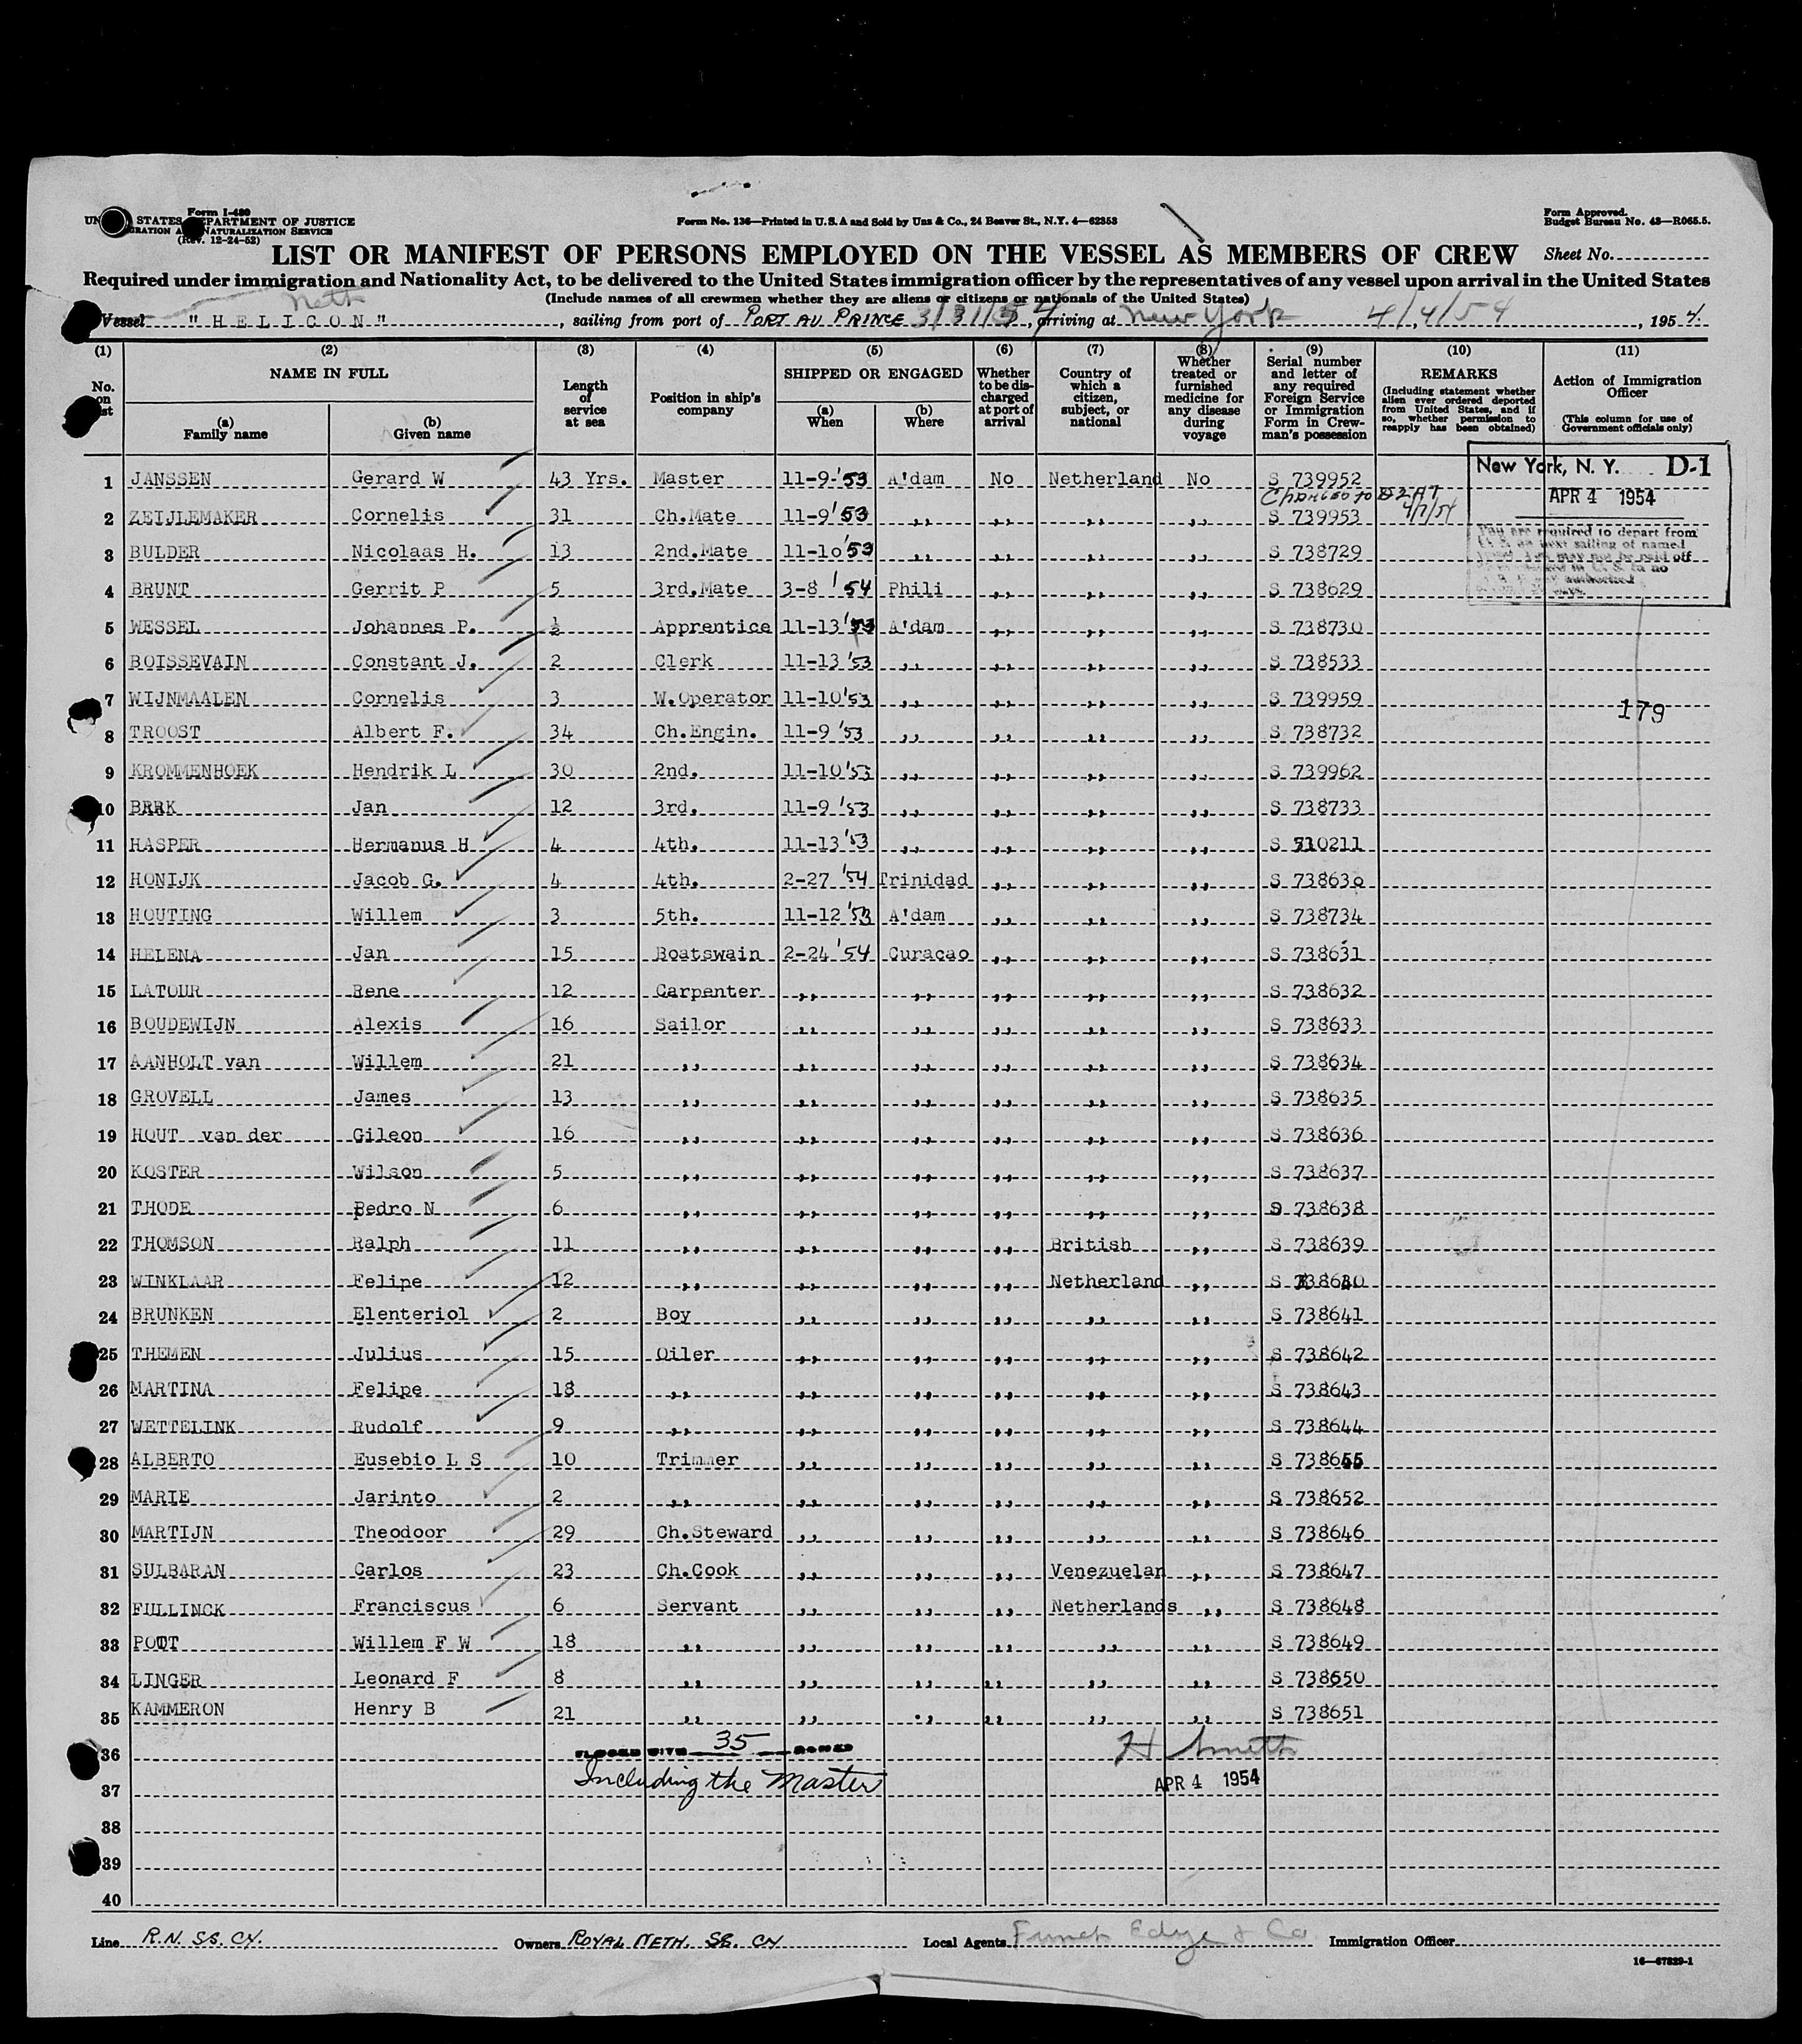 Form I-480
UNITED STATES DEPARTMENT OF JUSTICE
IMMIGRATION AND NATURALIZATION SERVICE
(Rev. 12-24-52)
Form No. 136—Printed in U.S.A and Sold by Unz & Co., 24 Beaver St., N.Y. 4—62353
Form Approved.
Budget Bureau No. 43—R065.5.
LIST OR MANIFEST OF PERSONS EMPLOYED ON THE VESSEL AS MEMBERS OF CREW
Sheet No.
Required under immigration and Nationality Act, to be delivered to the United States immigration officer by the representatives of any vessel upon arrival in the United States
(Include names of all crewmen whether they are aliens or citizens or nationals of the United States)
Neth
Vessel "HELICON", sailing from port of PORT AU PRINCE 3/31/54, arriving at New York 4/4/54, 1954.
(1) (2) (3) (4) (5) (6) (7) (8) (9) (10) (11)
No. on list
NAME IN FULL
(a) Family name
(b) Given name
Length of service at sea
Position in ship's company
SHIPPED OR ENGAGED
(a) When
(b) Where
Whether to be discharged at port of arrival
Country of which a citizen, subject, or national
Whether treated or furnished medicine for any disease during voyage
Serial number and letter of any required Foreign Service or Immigration Form in Crewman's possession
REMARKS
(Including statement whether alien ever ordered deported from United States, and if so, whether permission to reapply has been obtained)
Action of Immigration Officer
(This column for use of Government officials only)
New York, N. Y. D-1
APR 4 1954
You are required to depart from
1 JANSSEN Gerard W 43 Yrs. Master 11-9-'53 A'dam No Netherland No S 739952
Changed to D2 AT 4/7/54
2 ZEIJLEMAKER Cornelis 31 Ch.Mate 11-9'53 ,, ,, ,, ,, S 739953
3 BULDER Nicolaas H. 13 2nd.Mate 11-10'53 ,, ,, ,, ,, S 738729
4 BRUNT Gerrit P 5 3rd.Mate 3-8 '54 Phili ,, ,, ,, S 738629
5 WESSEL Johannes P. ½ Apprentice 11-13'53 A'dam ,, ,, ,, S 738730
6 BOISSEVAIN Constant J. 2 Clerk 11-13'53 ,, ,, ,, ,, S 738533
7 WIJNMAALEN Cornelis 3 W.Operator 11-10'53 ,, ,, ,, ,, S 739959
179
8 TROOST Albert F. 34 Ch.Engin. 11-9 '53 ,, ,, ,, ,, S 738732
9 KROMMENHOEK Hendrik L 30 2nd. 11-10'53 ,, ,, ,, ,, S 739962
10 BRRK Jan 12 3rd. 11-9 '53 ,, ,, ,, ,, S 738733
11 HASPER Hermanus H 4 4th. 11-13'53 ,, ,, ,, ,, S 710211
12 HONIJK Jacob G. 4 4th. 2-27 '54 Trinidad ,, ,, ,, S 738630
13 HOUTING Willem 3 5th. 11-12'53 A'dam ,, ,, ,, S 738734
14 HELENA Jan 15 Boatswain 2-24'54 Curacao ,, ,, ,, S 738631
15 LATOUR Rene 12 Carpenter ,, ,, ,, ,, ,, S 738632
16 BOUDEWIJN Alexis 16 Sailor ,, ,, ,, ,, ,, S 738633
17 AANHOLT van Willem 21 ,, ,, ,, ,, ,, ,, S 738634
18 GROVELL James 13 ,, ,, ,, ,, ,, ,, S 738635
19 HOUT van der Gileon 16 ,, ,, ,, ,, ,, ,, S 738636
20 KOSTER Wilson 5 ,, ,, ,, ,, ,, ,, S 738637
21 THODE Pedro N 6 ,, ,, ,, ,, ,, ,, S 738638
22 THOMSON Ralph 11 ,, ,, ,, ,, British ,, S 738639
23 WINKLAAR Felipe 12 ,, ,, ,, ,, Netherland ,, S 738640
24 BRUNKEN Elenteriol 2 Boy ,, ,, ,, ,, ,, S 738641
25 THEMEN Julius 15 Oiler ,, ,, ,, ,, ,, S 738642
26 MARTINA Felipe 18 ,, ,, ,, ,, ,, ,, S 738643
27 WETTELINK Rudolf 9 ,, ,, ,, ,, ,, ,, S 738644
28 ALBERTO Eusebio L S 10 Trimmer ,, ,, ,, ,, ,, S 738655
29 MARIE Jarinto 2 ,, ,, ,, ,, ,, ,, S 738652
30 MARTIJN Theodoor 29 Ch.Steward ,, ,, ,, ,, ,, S 738646
31 SULBARAN Carlos 23 Ch.Cook ,, ,, ,, Venezuelan ,, S 738647
32 FULLINCK Franciscus 6 Servant ,, ,, ,, Netherlands ,, S 738648
33 POTT Willem F W 18 ,, ,, ,, ,, ,, ,, S 738649
34 LINGER Leonard F 8 ,, ,, ,, ,, ,, ,, S 738650
35 KAMMERON Henry B 21 ,, ,, ,, ,, ,, ,, S 738651
36 35 H Smith
Including the Master
37 APR 4 1954
38
39
40
Line R.N. SS. CY. Owners ROYAL NETH. SS. CY Local Agents Funch Edye & Co Immigration Officer
16—67829-1